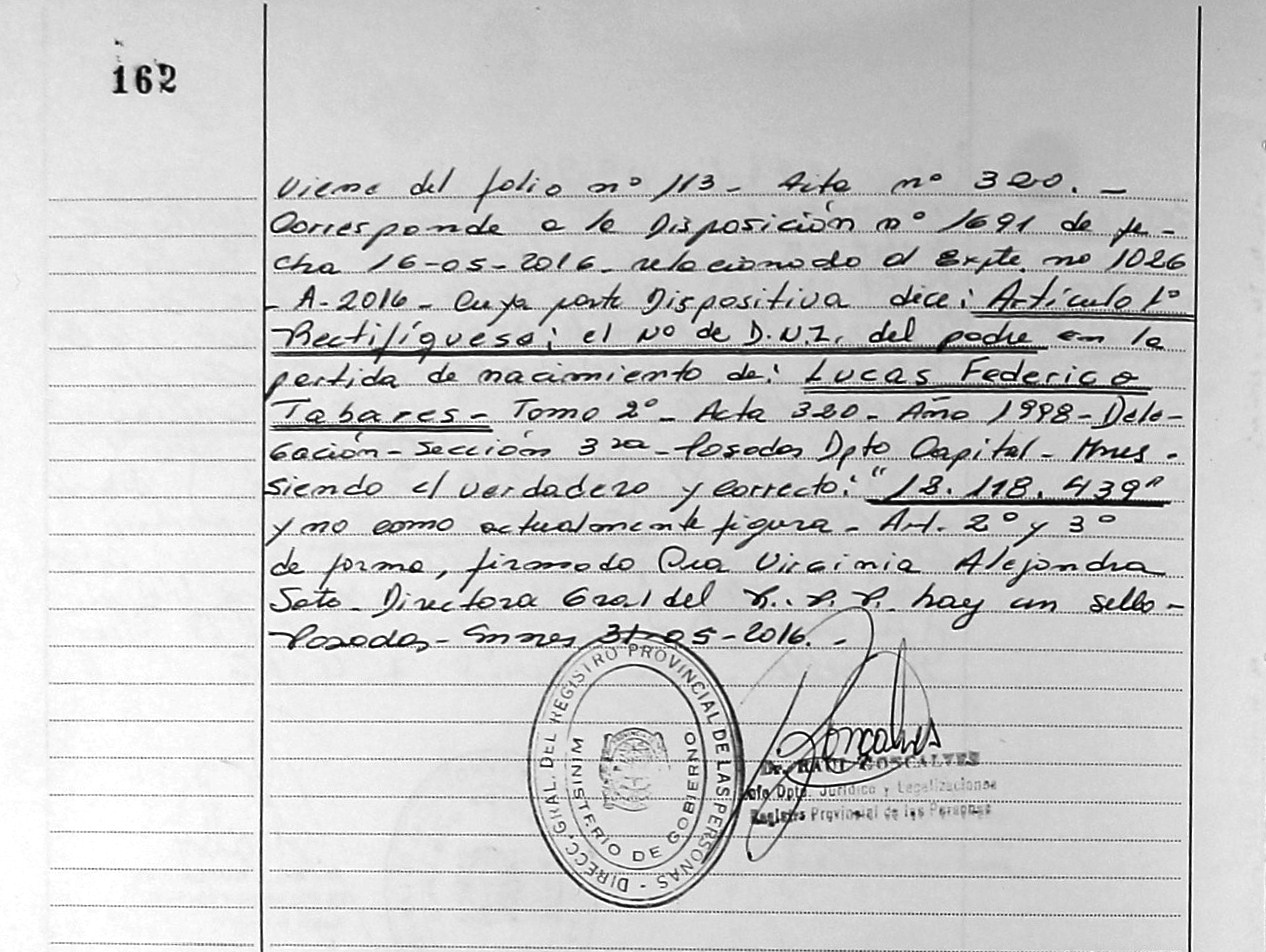 162
Viene del folio nº 113 - Acta nº 320. -
Corresponde a la Disposición nº 1691 de fe-
cha 16-05-2016 - relacionado al Expte. nº 1026
- A-2016 - Cuya parte Dispositiva dice: Artículo 1º
Rectifíquese; el Nº de D.N.I. del padre en la
partida de nacimiento de: Lucas Federico
Tabares - Tomo 2º - Acta 320 - Año 1998 - Dele-
gación - Sección 3ra - Posadas Dpto Capital - Mnes -
siendo el verdadero y correcto: "18.118.439"
y no como actualmente figura - Art. 2º y 3º
de forma, firmado Dra Virginia Alejandra
Soto - Directora Gral del R. P. P. hay un sello -
Posadas - Mnes 31-05-2016. -
DIRECC. GRAL. DEL REGISTRO PROVINCIAL DE LAS PERSONAS -
MINISTERIO DE GOBIERNO
Goncalves
Dr. RAUL GONCALVES
Jefe Dpto. Jurídico y Legalizaciones
Registro Provincial de las Personas